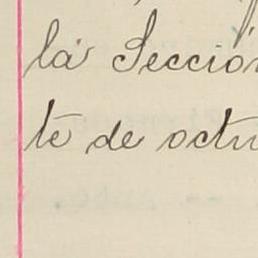 la Sección
te de octu